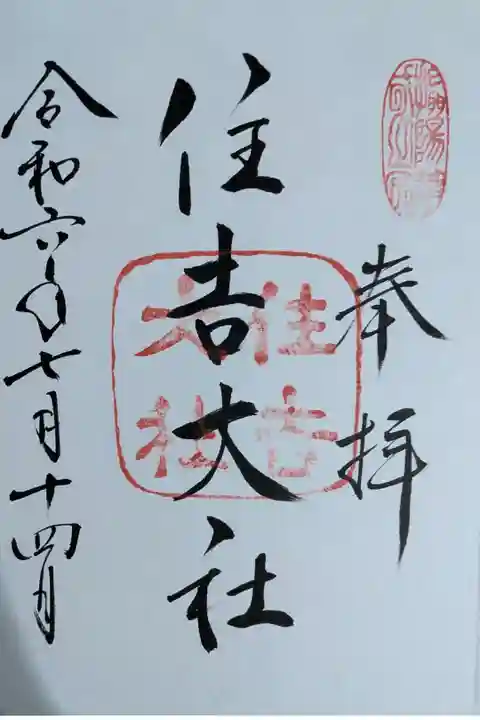 奉拝
住吉大社
住吉
大社
令和六年七月十四日